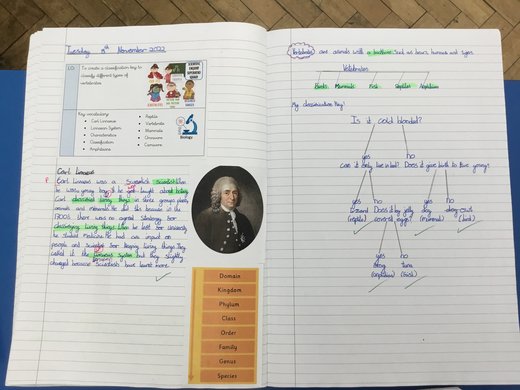 Tuesday 8th November 2022
L.O:
To create a classification key to
classify different types of
vertebrates
Key vocabulary
Carl Linnaeus
Linnaean System
Characteristics
Classification
Amphibians
Reptile
Vertebrate
Mammals
Omnivore
Carnivore
Biology
Carl Linnaeus
Carl Linnaeus was a Swedish scientist
he was young boy he got taught about botany
Carl classified living things in three groups plants,
animals and minerals. He did this because in the
1700s there was no agreed strategy for
classifying living things. When he left for University
he studied medicine. He had an impact on
people and scientist for keeping living things. They
called it the Linnaeus System but they slightly
changed because scientists have learnt more.
Domain
Kingdom
Phylum
Class
Order
Family
Genus
Species
Vertebrates are animals with a backbone such as bears, humans and tigers.
Vertebrates
Birds Mammals Fish Reptiles Amphibians
My classification Key!
Is it cold blooded?
yes no
can it only live in land? Does it give birth to live young?
yes no yes no
lizard Does it lay jelly dog
(reptile) covered eggs? (mammal) (bird)
yes no
frog tuna
(amphibian) (fish)